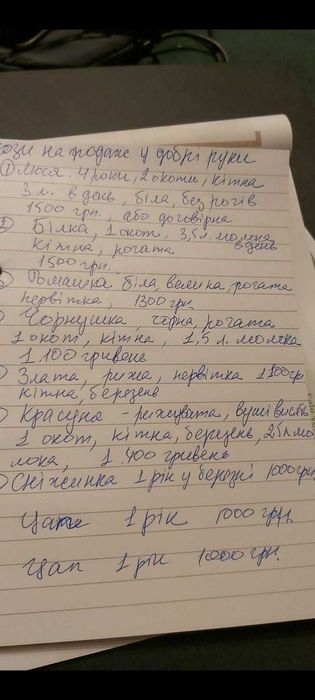 кози на продаж у добрі руки
① Люся. 4 роки, 2 окоти, кітна
3 л. в день, біла, без рогів
1500 грн, або договірна
2) Білка, 1 окот, 3,5 л. молока
в день
кітна, рогата
1500 грн.
Ромашка біла, велика, рогата
первітка, 1300 грн
Чорнушка, чорна, рогата
1 окот, кітна, 1,5 л. молока
1.100 гривень
Злата, рижа, первітка 1100 гр
кітна, березень
Красуня - рижувата, вуші
1 окот, кітна, березень, 2,5 л мо
лока, 1.400 гривень
Сніжинка 1 рік у березні 1000 грн
Цап 1 рік 1000 грн.
Цап 1 рік 1000 грн.